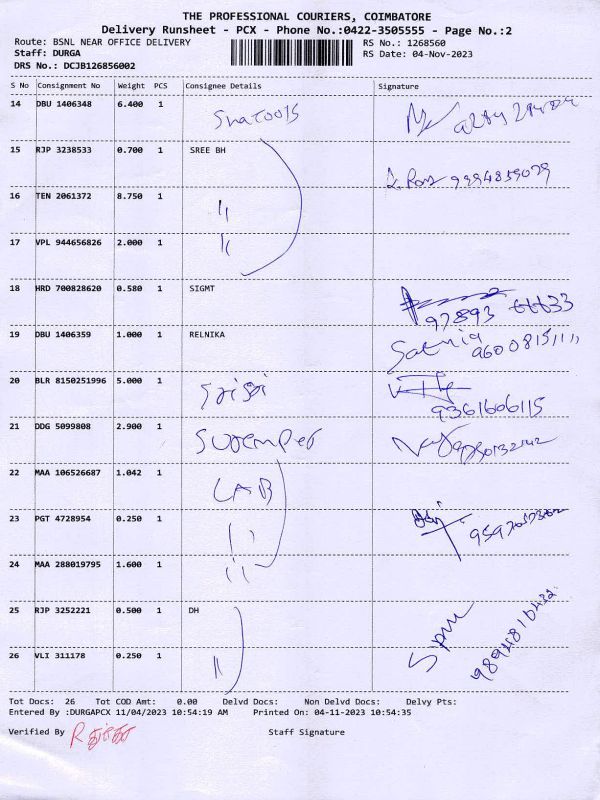 THE PROFESSIONAL COURIERS, COIMBATORE
Delivery Runsheet - PCX - Phone No.:0422-3505555 - Page No.:2
Route: BSNL NEAR OFFICE DELIVERY RS No.: 1268560
Staff: DURGA RS Date: 04-Nov-2023
DRS No.: DCJB126856002
S No Consignment No Weight PCS Consignee Details Signature
14 DBU 1406348 6.400 1
15 RJP 3238533 0.700 1 SREE BH
9994859079
16 TEN 2061372 8.750 1 "
17 VPL 944656826 2.000 1 "
18 HRD 700828620 0.580 1 SIGMT
97893
19 DBU 1406359 1.000 1 RELNIKA
20 BLR 8150251996 5.000 1
9361606115
21 DDG 5099808 2.900 1
22 MAA 106526687 1.042 1 LAB
23 PGT 4728954 0.250 1 "
24 MAA 288019795 1.600 1 "
25 RJP 3252221 0.500 1 DH
26 VLI 311178 0.250 1 "
Tot Docs: 26 Tot COD Amt: 0.00 Delvd Docs: Non Delvd Docs: Delvy Pts:
Entered By :DURGAPCX 11/04/2023 10:54:19 AM Printed On: 04-11-2023 10:54:35
Verified By Staff Signature